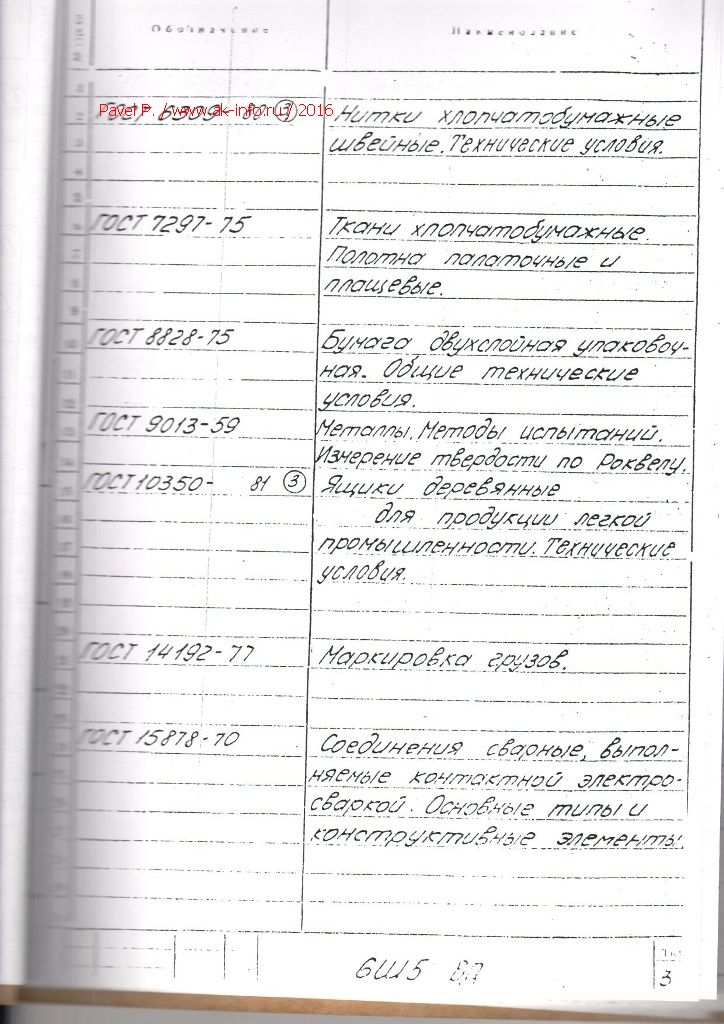 Обозначение Наименование
Pavel P. / www.ak-info.ru / 2016
ГОСТ 6309-80 ③ Нитки хлопчатобумажные
швейные. Технические условия.
ГОСТ 7297-75 Ткани хлопчатобумажные.
Полотна палаточные и
плащевые.
ГОСТ 8828-75 Бумага двухслойная упаковоч-
ная. Общие технические
условия.
ГОСТ 9013-59 Металлы. Методы испытаний.
Измерение твердости по Роквелу.
ГОСТ 10350- 81 ③ Ящики деревянные
для продукции легкой
промышленности. Технические
условия.
ГОСТ 14192-77 Маркировка грузов.
ГОСТ 15878-70 Соединения сварные, выпол-
няемые контактной электро-
сваркой. Основные типы и
конструктивные элементы.
6Ш5 Лист
3